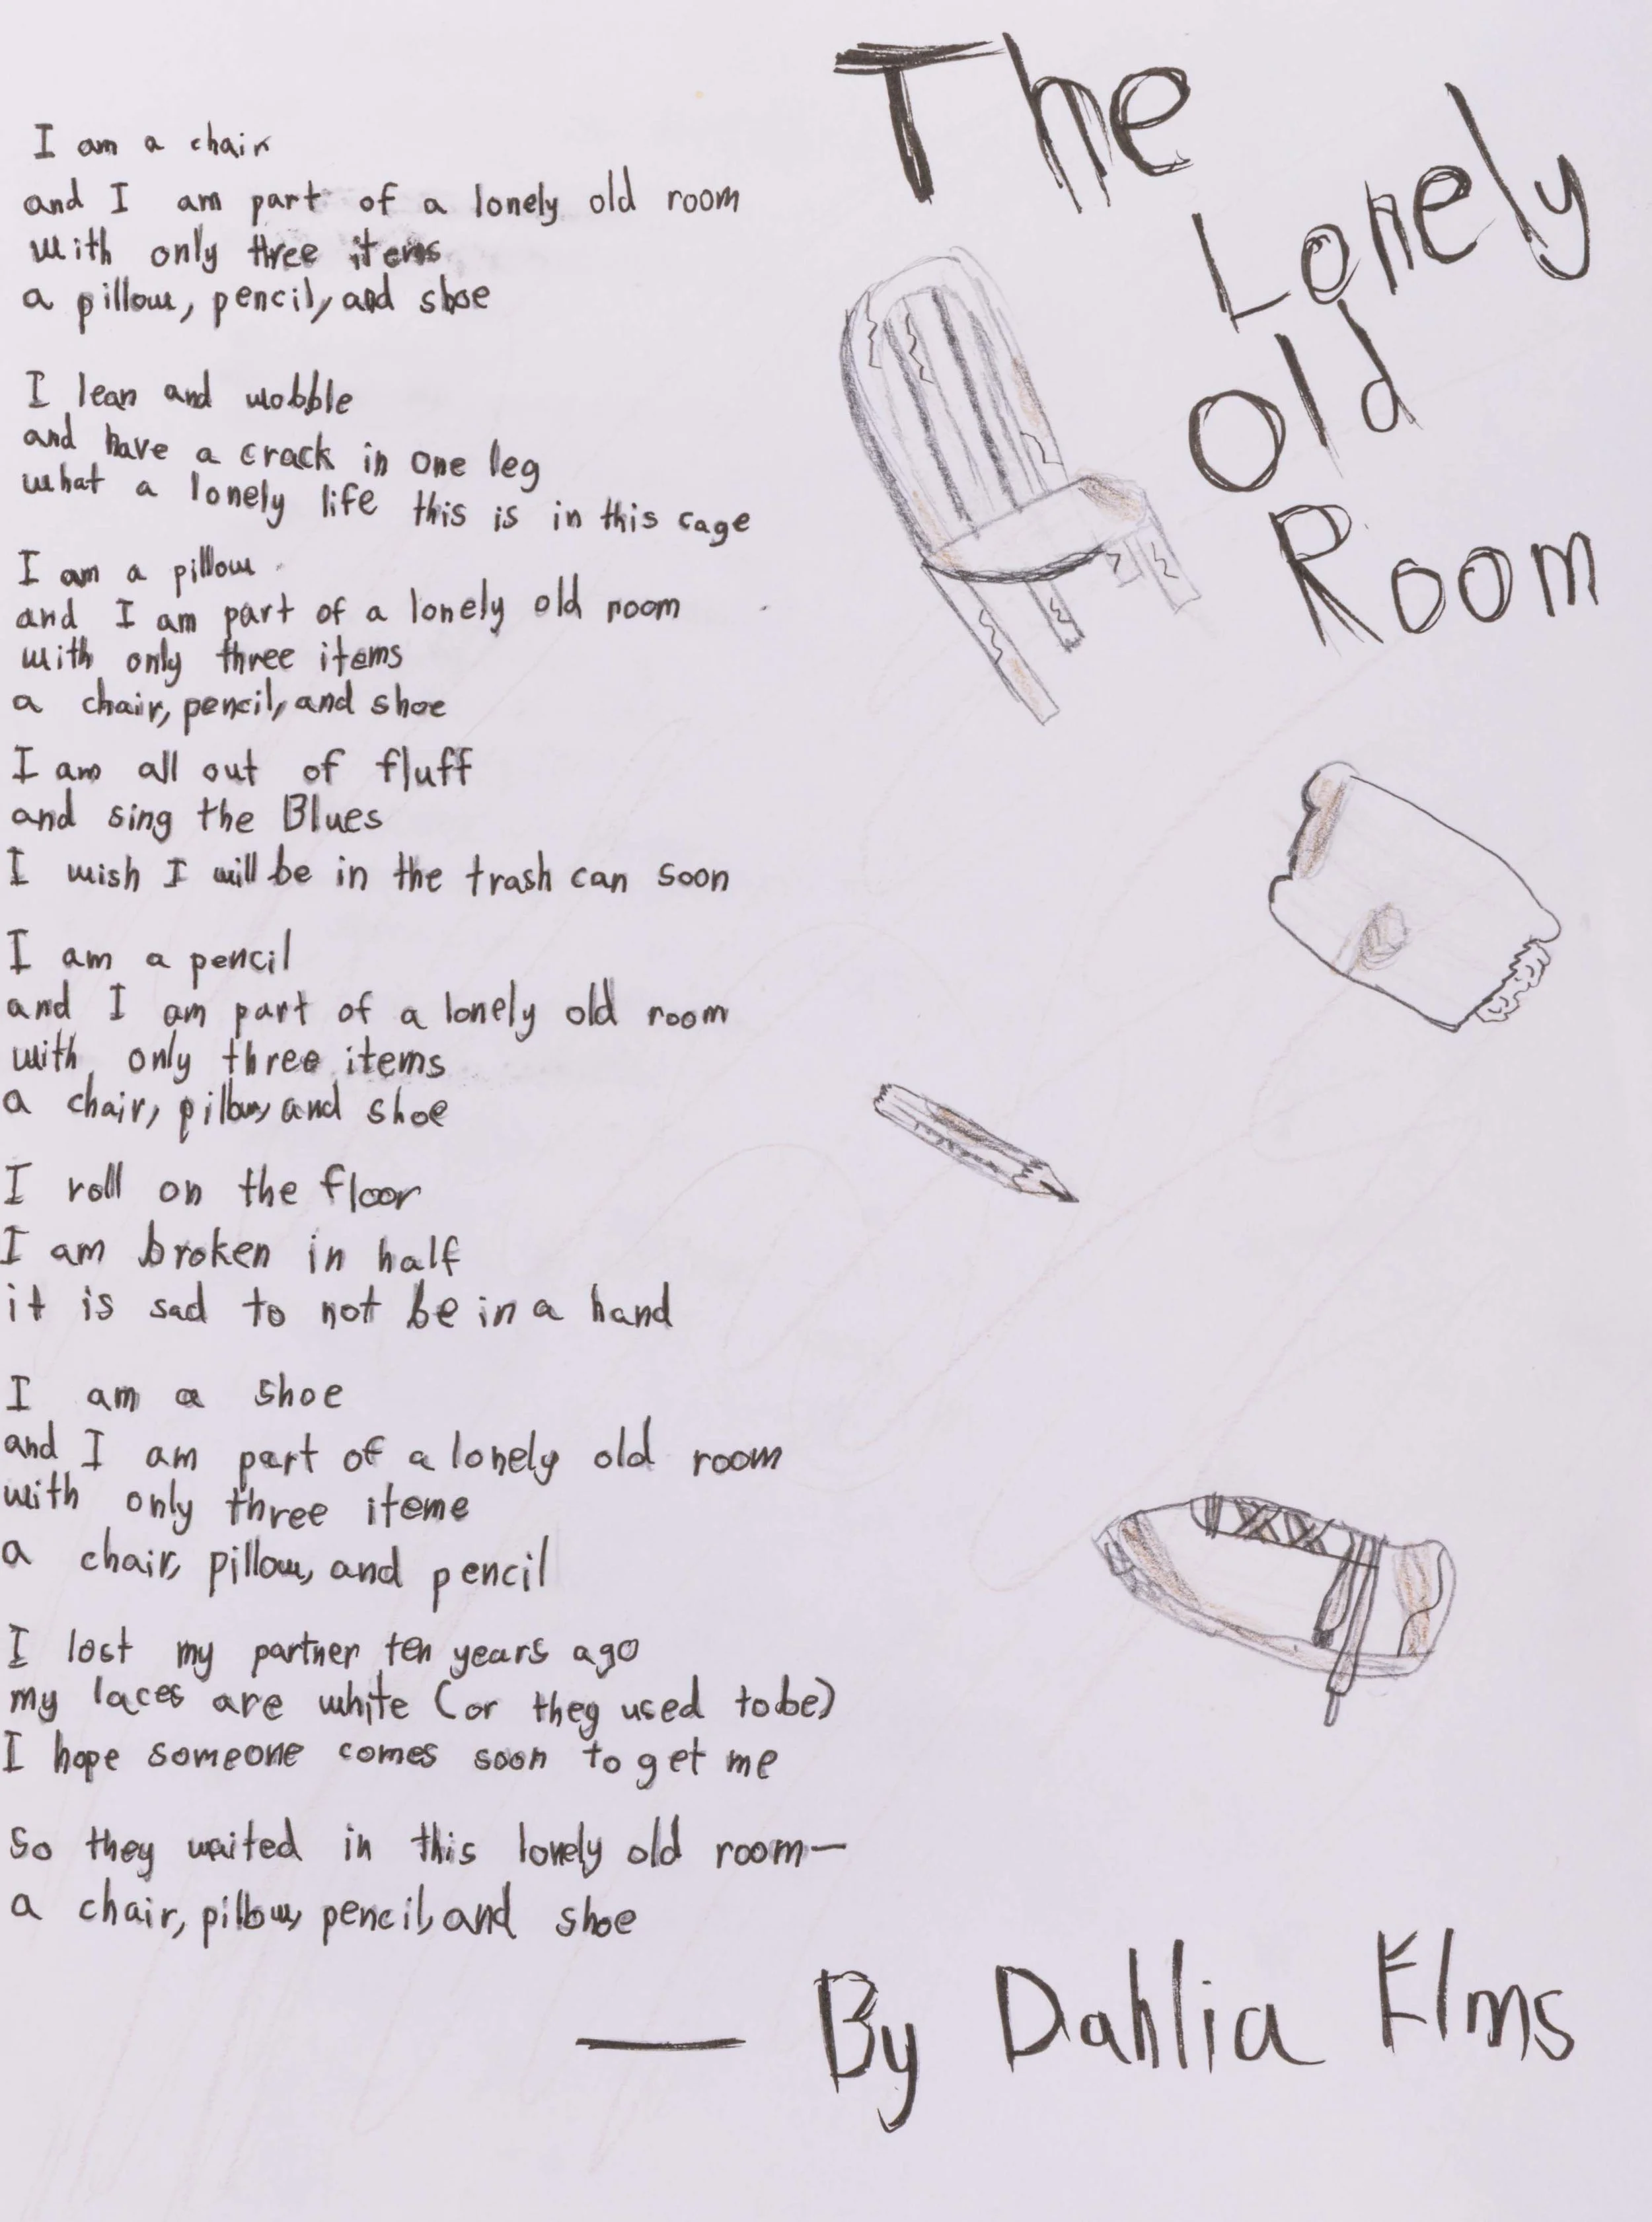 The
Lonely
Old
Room
I am a chair
and I am part of a lonely old room
with only three items
a pillow, pencil, and shoe
I lean and wobble
and have a crack in one leg
what a lonely life this is in this cage
I am a pillow
and I am part of a lonely old room
with only three items
a chair, pencil, and shoe
I am all out of fluff
and sing the Blues
I wish I will be in the trash can soon
I am a pencil
and I am part of a lonely old room
with only three items
a chair, pillow, and shoe
I roll on the floor
I am broken in half
it is sad to not be in a hand
I am a shoe
and I am part of a lonely old room
with only three iteme
a chair, pillow, and pencil
I lost my partner ten years ago
my laces are white (or they used to be)
I hope someone comes soon to get me
So they waited in this lonely old room—
a chair, pillow, pencil, and shoe
— By Dahlia Elms